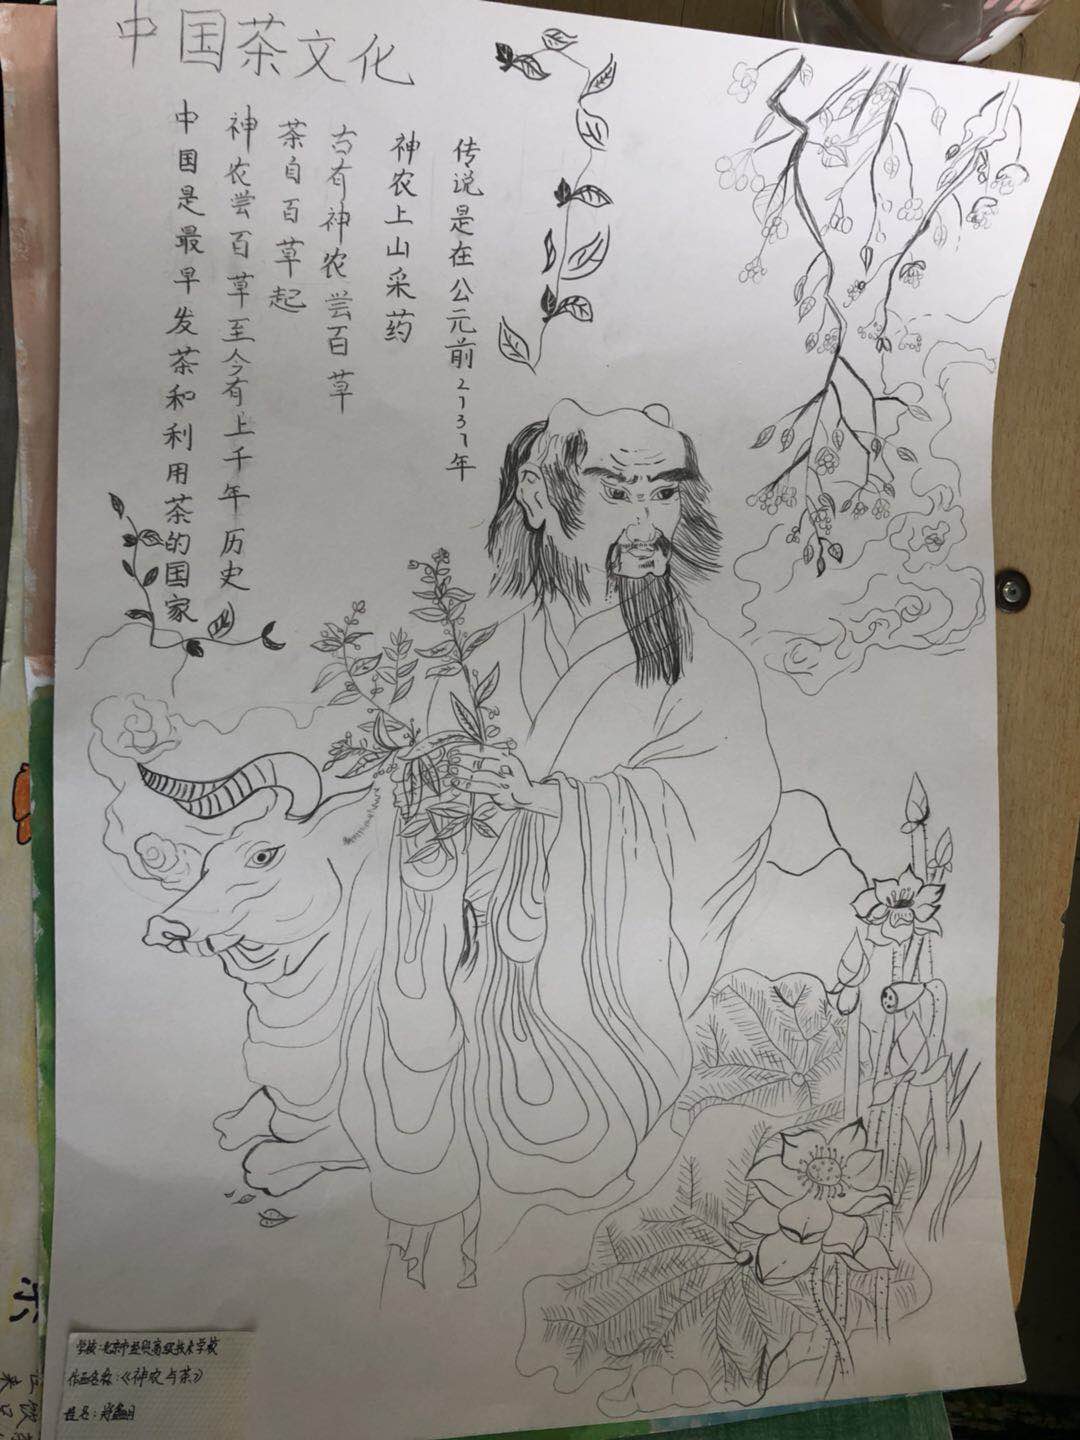 中国茶文化
传说是在公元前2737年
神农上山采药
古有神农尝百草
茶自百草起
神农尝百草至今有上千年历史
中国是最早发茶和利用茶的国家
学校:北京市经贸高级技术学校
作画名称:《神农与茶》
姓名: